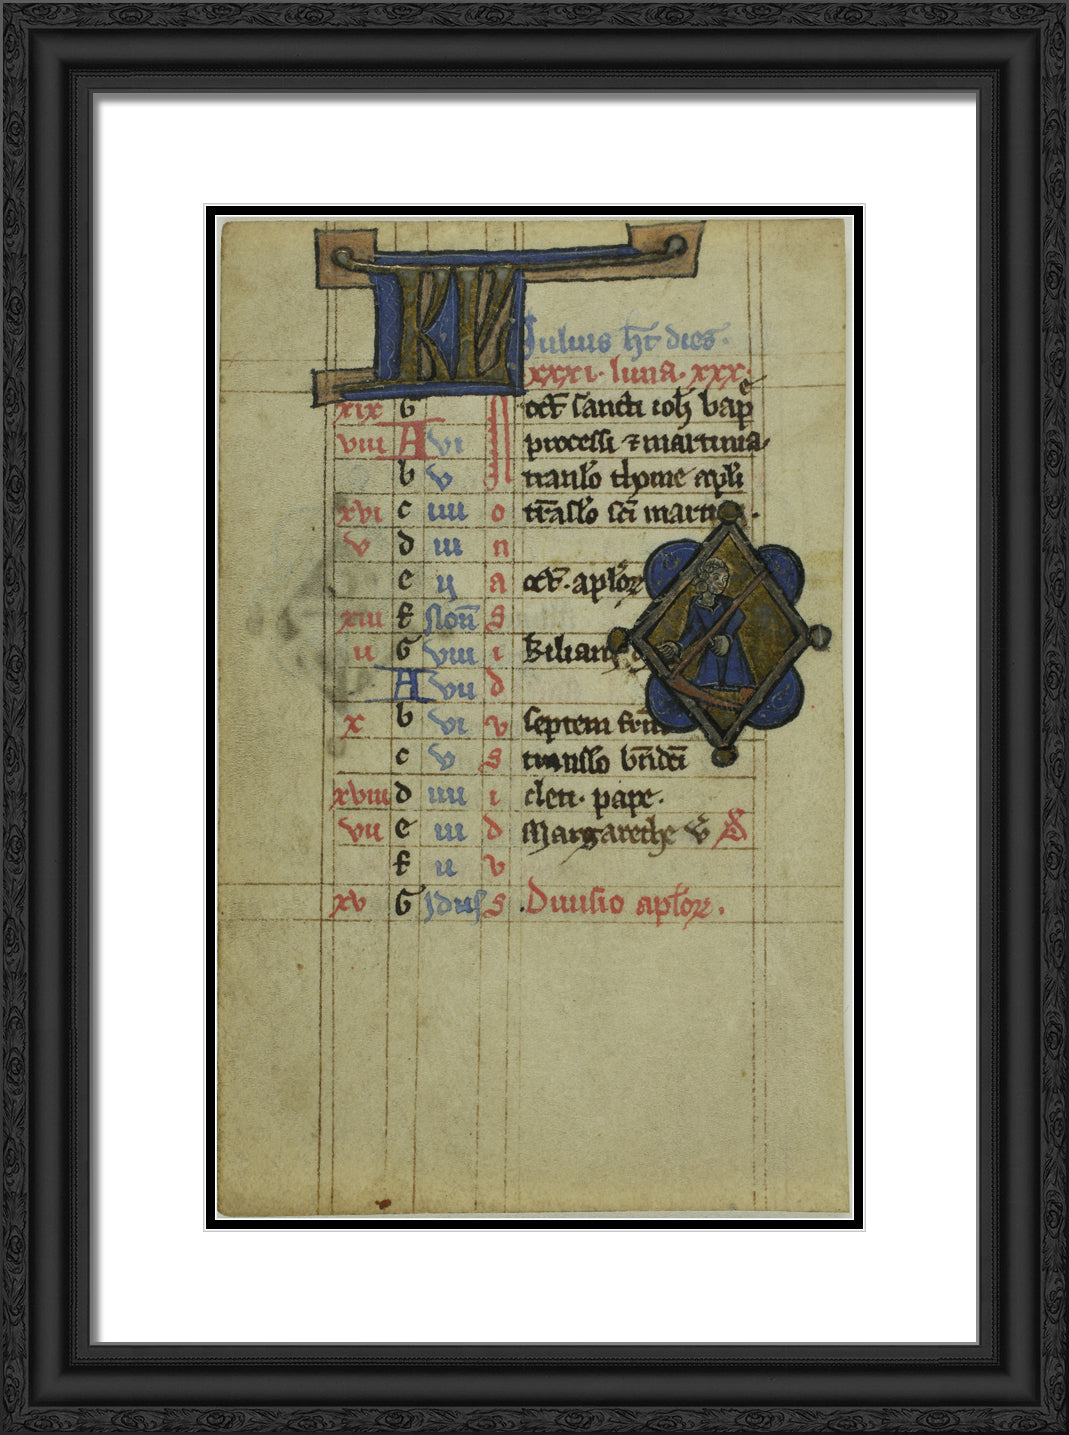 KL Iulius ht dies.
xxxi. luna. xxx.
xix G oct sancti ioh bap
viii A vi processi ⁊ martinia
b v translo thome apli
xvi c iiii o traslo sci
v d iii n
e ij a oct. aplor
xiii f Non s
ii G viii i kilian
A vii d
x b vi v septem
c v s translo
xviii d iiii i cleti. pape.
vii e iii d Margarethe v
f ii v
xv G idus s Diuisio aplor.